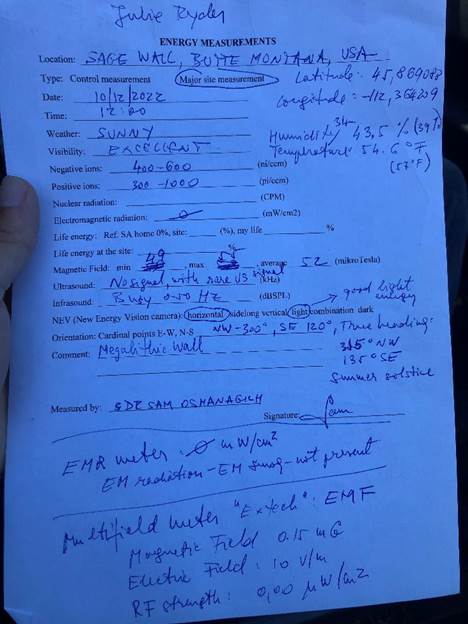 Julie Ryder
ENERGY MEASUREMENTS
Location: SAGE WALL, BUTTE MONTANA, USA
Type: Control measurement Major site measurement
Latitude: 45,869088
Date: 10/12/2022
Longitude: -112,364209
Time: 12:00
Weather: SUNNY
Humidity 34- 43,5 % (39%)
Visibility: EXCELLENT
Temperature: 54.6 °F
(57°F)
Negative ions: 400-600 (ni/ccm)
Positive ions: 300-1000 (pi/ccm)
Nuclear radiation: (CPM)
Electromagnetic radiation: 0 (mW/cm2)
Life energy: Ref. SA home 0%, site: (%), my life %
Life energy at the site: %
Magnetic Field: min 49, max, average 52 (mikroTesla)
Ultrasound: No signal, with rare US signal (kHz)
Infrasound: Busy 0-50 Hz (dBSPL)
good light energy
NEV (New Energy Vision camera): horizontal sidelong vertical light combination dark
Orientation: Cardinal points E-W, N-S NW-300°, SE 120°, True heading:
Comment: Megalithic wall
315° NW
135° SE
Summer solstice
Measured by: SDR SAM OSMANAGICH
Signature: Sam
EMR meter: 0 mW/cm2
EM radiation - EM smog - not present
Multifield meter "Extech": EMF
Magnetic Field 0.15 mG
Electric Field: 10 V/m
RF strength: 0,00 µW/cm2